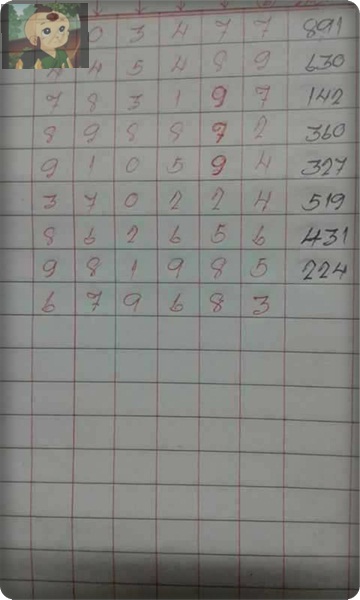 0 3 4 7 7 891
4 4 5 4 8 9 630
7 8 3 1 9 7 142
8 9 8 8 7 2 360
9 1 0 5 9 4 327
3 7 0 2 2 4 519
8 6 2 6 5 6 431
9 8 1 9 8 5 224
6 7 9 6 8 3